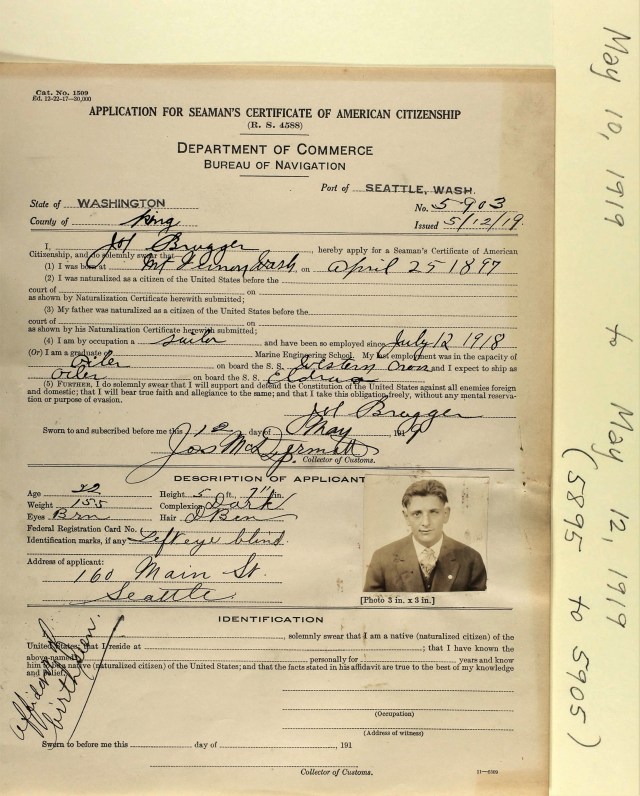 Cat. No. 1509
Ed. 12-22-17—30,000
APPLICATION FOR SEAMAN'S CERTIFICATE OF AMERICAN CITIZENSHIP
(R. S. 4588)
DEPARTMENT OF COMMERCE
BUREAU OF NAVIGATION
Port of SEATTLE, WASH.
State of WASHINGTON
No. 5903
County of King
Issued 5/12/19.
I, Jos Brugger, hereby apply for a Seaman's Certificate of American
Citizenship, and do solemnly swear that
(1) I was born at Mt Vernon Wash, on April 25 1897
(2) I was naturalized as a citizen of the United States before the
court of on
as shown by Naturalization Certificate herewith submitted;
(3) My father was naturalized as a citizen of the United States before the
court of on
as shown by his Naturalization Certificate herewith submitted;
(4) I am by occupation a sailor and have been so employed since July 12 1918
(Or) I am a graduate Marine Engineering School. My last employment was in the capacity of
Oiler on board the S. S. Western Cross and I expect to ship as
Oiler on board the S. S.
(5) FURTHER, I do solemnly swear that I will support and defend the Constitution of the United States against all enemies foreign
and domestic; that I will bear true faith and allegiance to the same; and that I take this obligation freely, without any mental reserva-
tion or purpose of evasion.
Jos Brugger
Sworn to and subscribed before me this 12 day of May, 1919
Jas McDermott
Collector of Customs.
DESCRIPTION OF APPLICANT
Age 22 Height 5 ft., 7" in.
Weight 155 Complexion Dark
Eyes Brn Hair D Brn
Federal Registration Card No.
Identification marks, if any Left eye blind.
Address of applicant:
160 Main St.
Seattle
[Photo 3 in. x 3 in.]
IDENTIFICATION
, solemnly swear that I am a native (naturalized) citizen of the
United States; that I reside at ; that I have known the
above-named personally for years and know
him to be a native (naturalized) citizen of the United States; and that the facts stated in his affidavit are true to the best of my knowledge
and belief.
affidavit of birth seen.
(Occupation)
(Address of witness)
Sworn to before me this day of , 191
Collector of Customs.
11—9509
May 10, 1919 to May 12, 1919
(5895 to 5905)